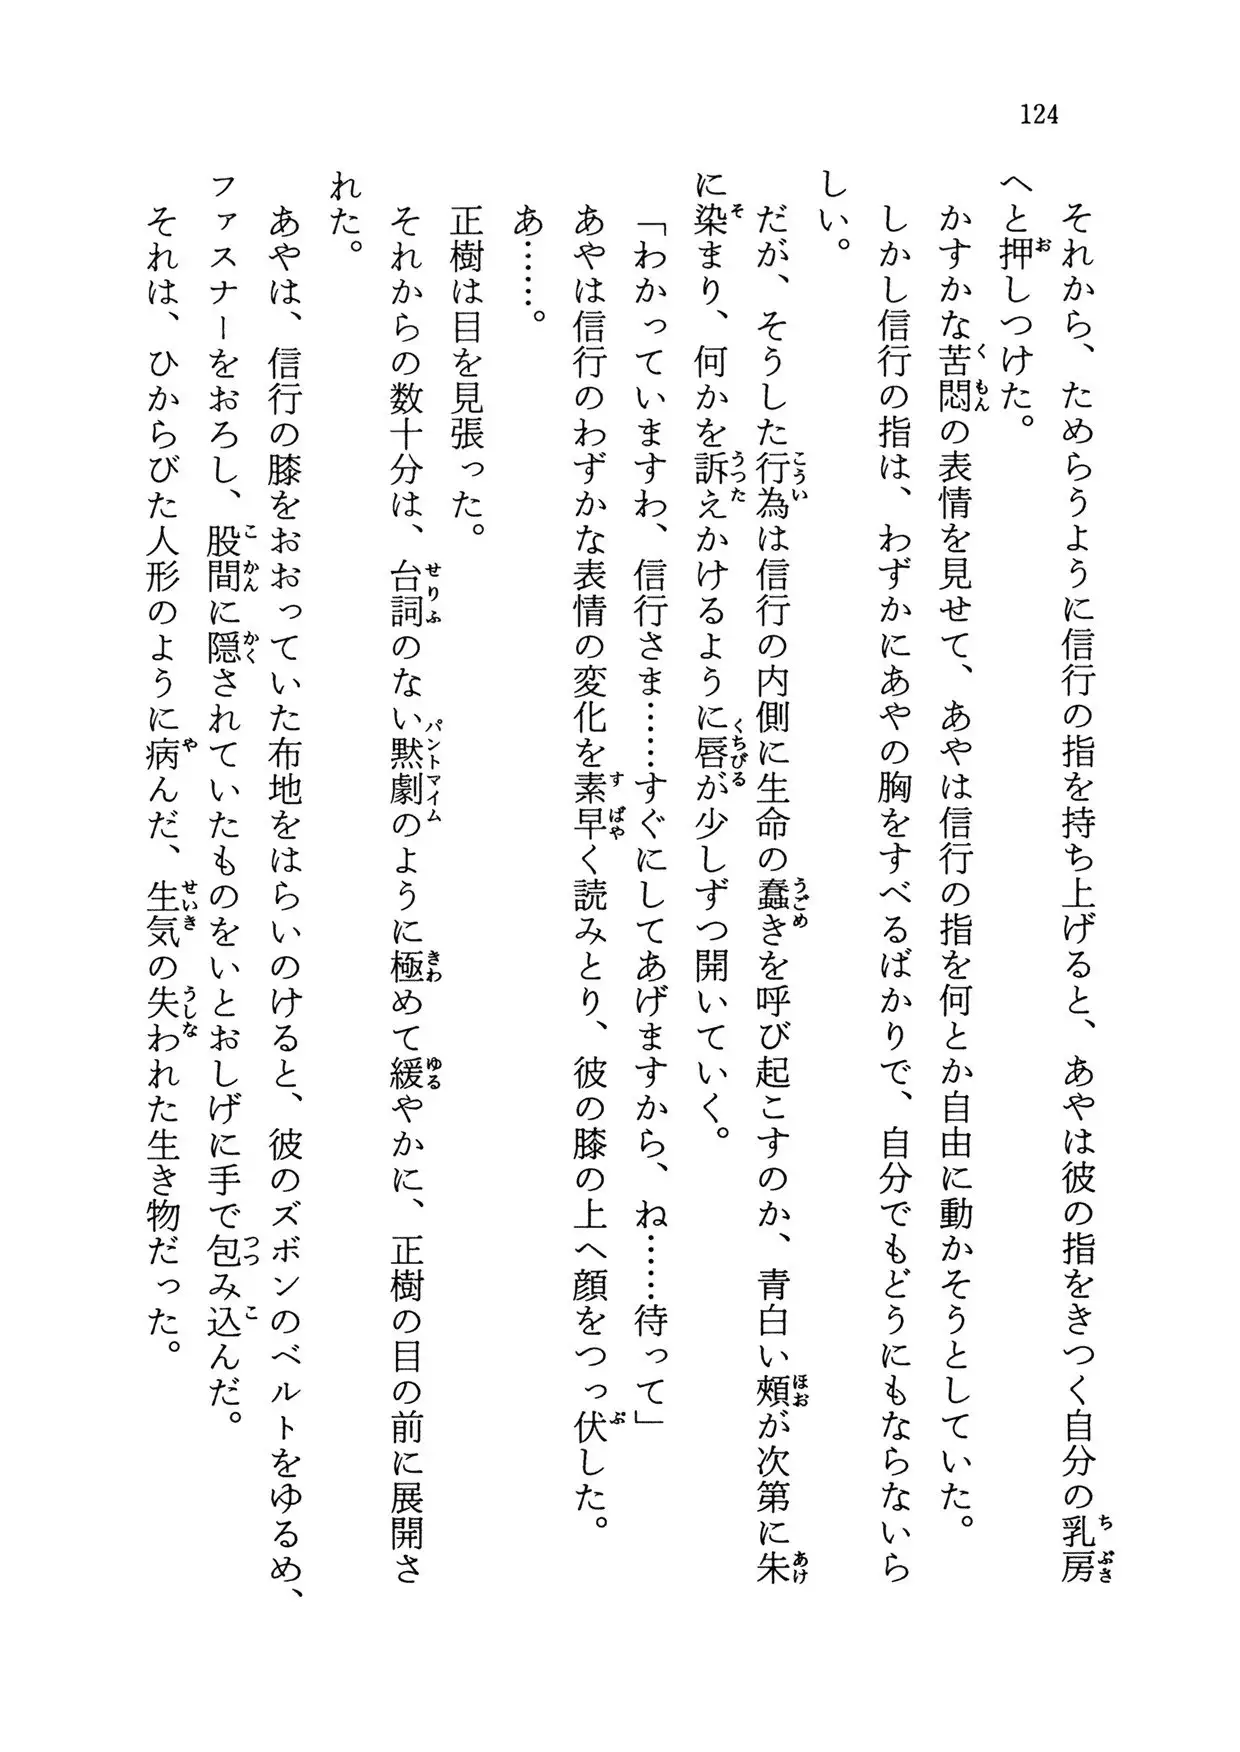 124
それから、ためらうように信行の指を持ち上げると、あやは彼の指をきつく自分の乳房
へと押しつけた。
かすかな苦悶の表情を見せて、あやは信行の指を何とか自由に動かそうとしていた。
しかし信行の指は、わずかにあやの胸をすべるばかりで、自分でもどうにもならないら
しい。
だが、そうした行為は信行の内側に生命の蠢きを呼び起こすのか、青白い頰が次第に朱
に染まり、何かを訴えかけるように唇が少しずつ開いていく。
「わかっていますわ、信行さま……すぐにしてあげますから、ね……待って」
あやは信行のわずかな表情の変化を素早く読みとり、彼の膝の上へ顔をつっ伏した。
あ……。
正樹は目を見張った。
それからの数十分は、台詞のない黙劇のように極めて緩やかに、正樹の目の前に展開さ
れた。
あやは、信行の膝をおおっていた布地をはらいのけると、彼のズボンのベルトをゆるめ、
ファスナーをおろし、股間に隠されていたものをいとおしげに手で包み込んだ。
それは、ひからびた人形のように病んだ、生気の失われた生き物だった。